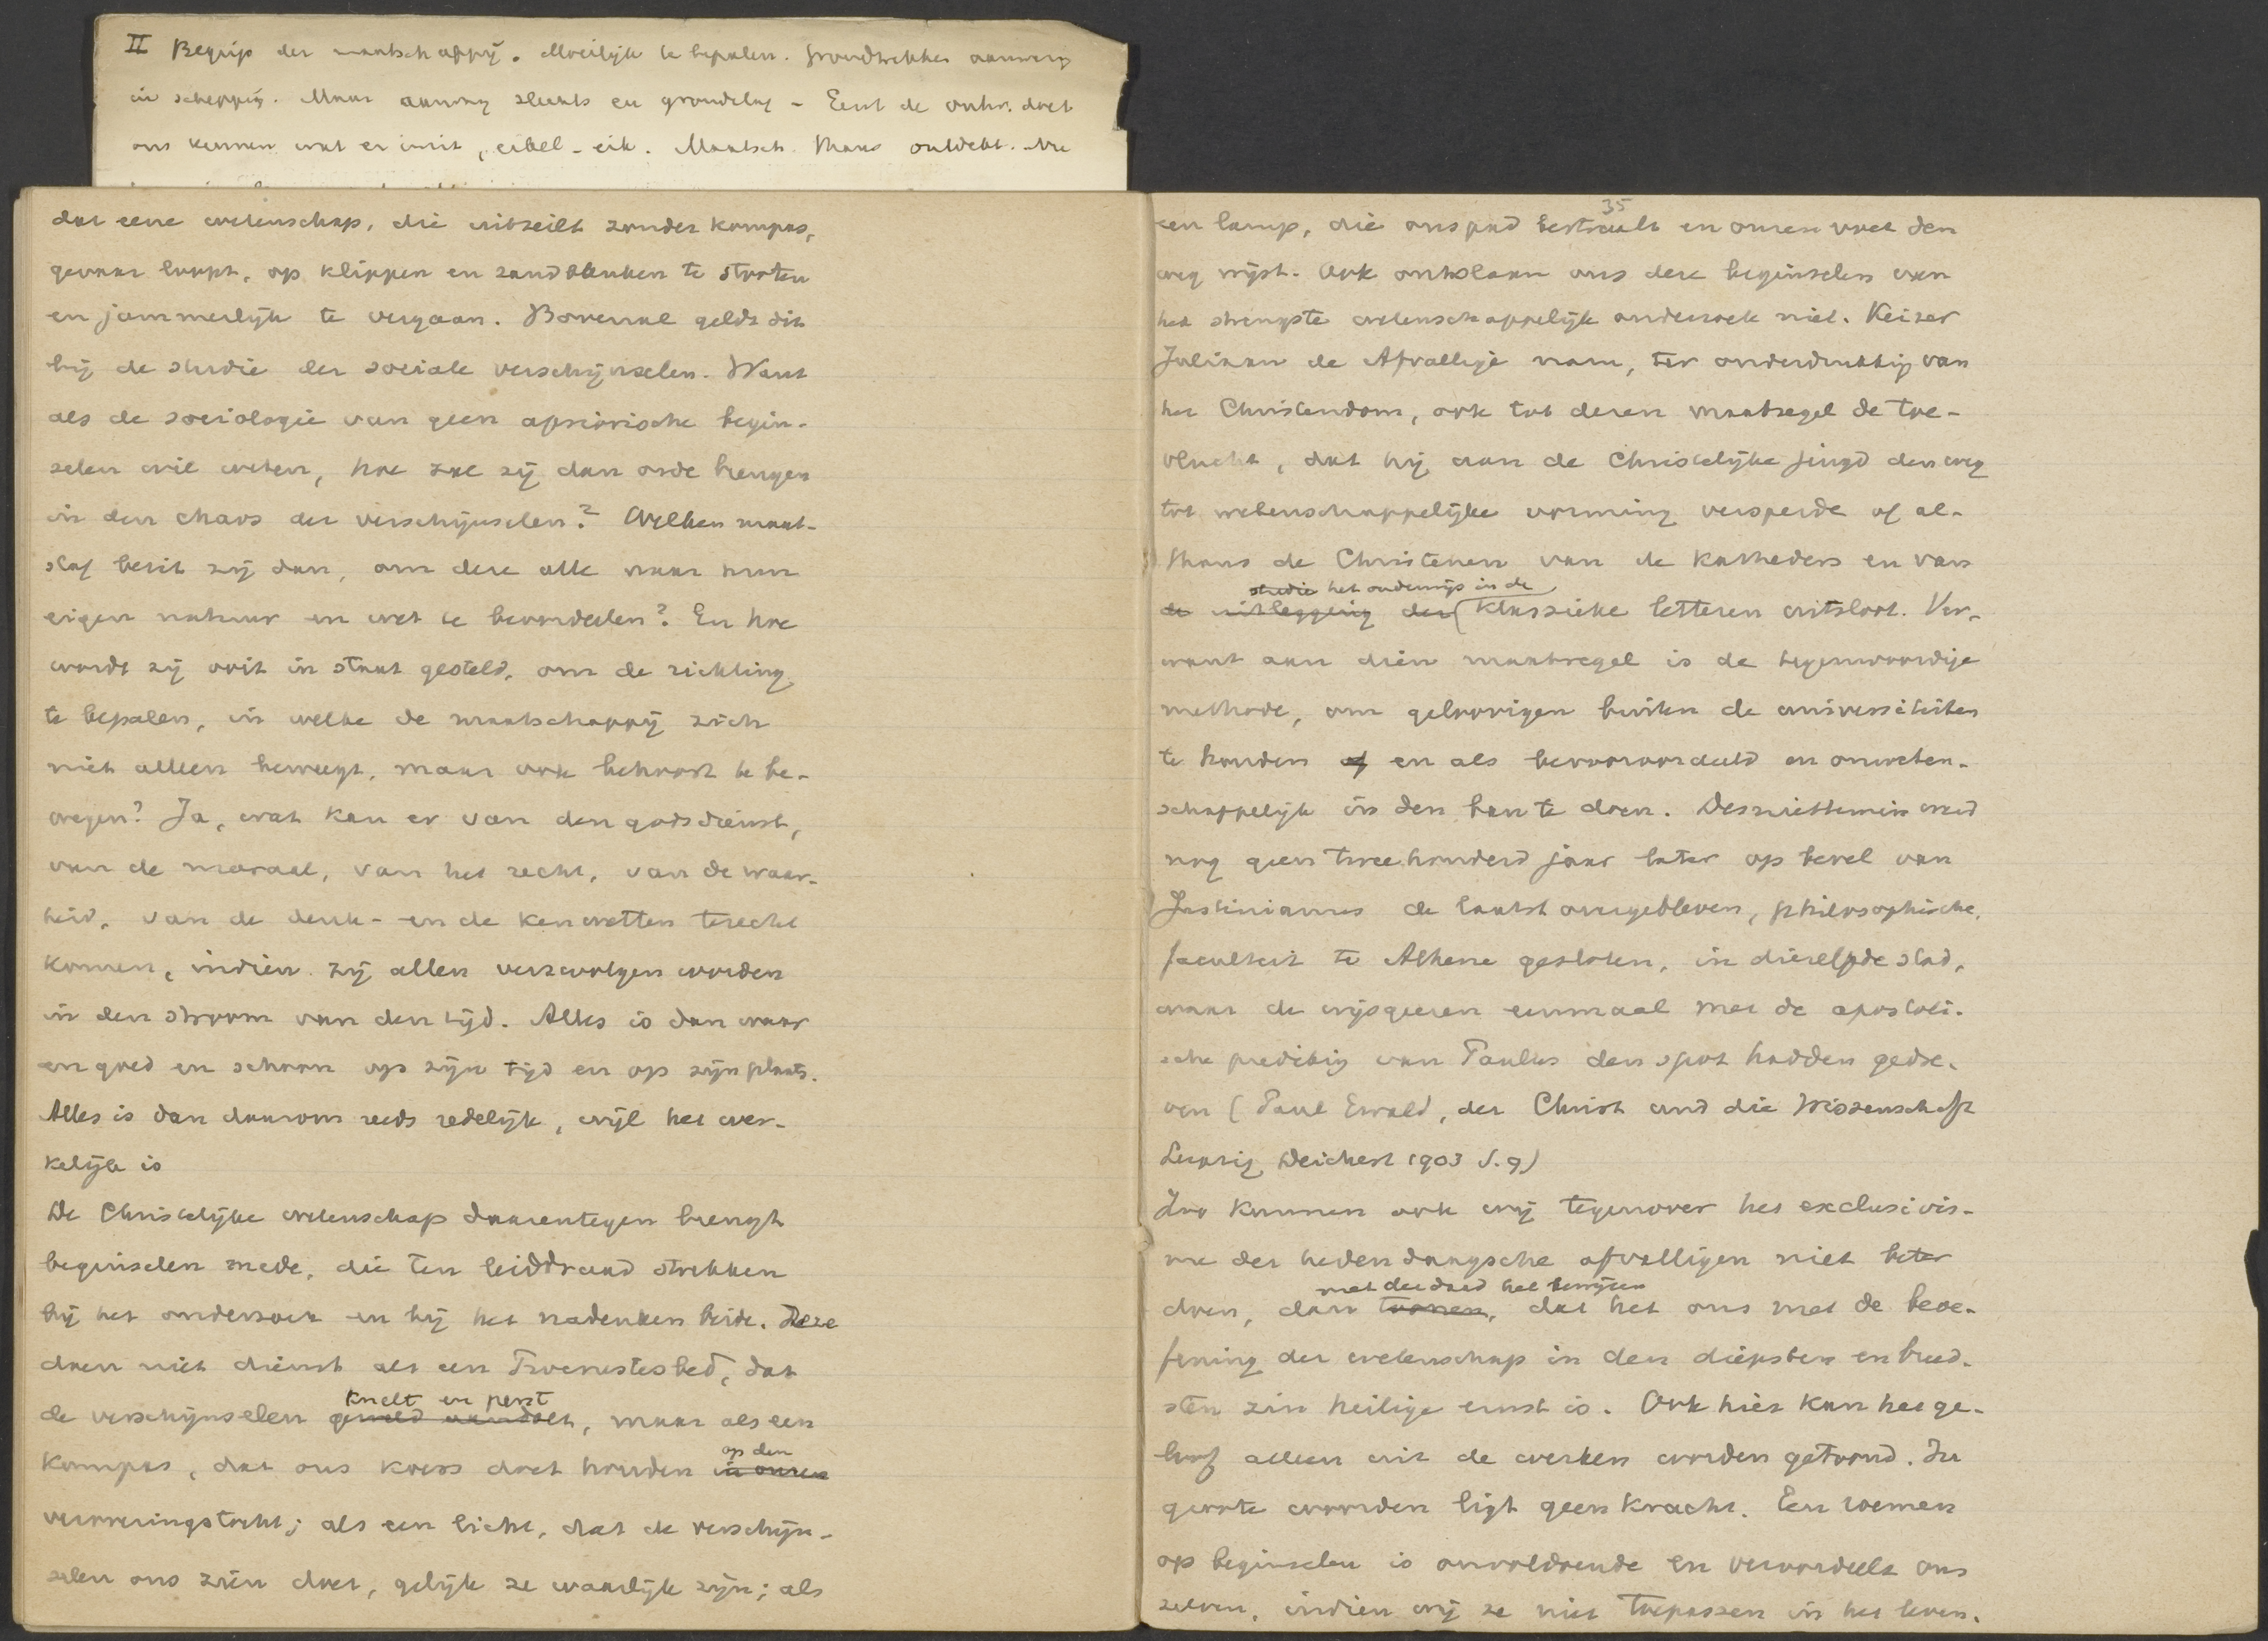 II Begrip der maatschappij. Moeilijk te bepalen. Grondtrekken aanwezig
in schepping. Maar aanwezig slechts en grondeleg - Eerst de ontw. doet
ons kennen wat er in zit, eikel - eik. Maatsch. thans ontdekt. Nu
dat eene wetenschap, die uitzeilt zonder kompas,
gevaar loopt, op klippen en zandbanken te stooten
en jammerlijk te vergaan. Bovenal geldt dit
bij de studie der sociale verschijnselen. Want
als de sociologie van geen apriorische begin-
selen wil weten, hoe zal zij dan orde brengen
in den chaos der verschijnselen? Welken maat-
staf bezit zij dan, om deze alle naar hun
eigen natuur en wet te beoordeelen? En hoe
wordt zij ooit in staat gesteld, om de richting
te bepalen, in welke de maatschappij zich
niet alleen beweegt, maar ook behoort te be-
wegen? Ja, wat kan er van den godsdienst,
van de moraal, van het recht, van de waar-
heid, van de denk- en de kenwetten terecht
komen, indien zij allen verzwolgen worden
in den stroom van den tijd. Alles is dan waar
en goed en schoon op zijn tijd en op zijn plaats.
Alles is dan daarom reeds redelijk, wijl het wer-
kelijk is
De Christelijke wetenschap daarentegen brengt
beginselen mede, die ten leiddraad strekken
bij het onderzoek en bij het nadenken beide. Deze
doen niet dienst als een Procrustesbed, dat
knelt en perst
de verschijnselen geweld aandoet, maar als een
op den
kompas, dat ons koers doet houden in onzen
veroveringstocht; als een licht, dat de verschijn-
selen ons zien doet, gelijk ze waarlijk zijn; als
35
een lamp, die ons pad bestraalt en onzen voet den
weg wijst. Ook ontslaan ons deze beginselen van
het strengste wetenschappelijk onderzoek niet. Keizer
Juliaan de Afvallige nam, ter onderdrukking van
het Christendom, ook tot dezen maatregel de toe-
vlucht, dat hij aan de Christelijke jeugd den weg
tot wetenschappelijke vorming versperde of al-
thans de Christenen van de katheders en van
studie het onderwijs in de
de uitlegging der klassieke letteren uitsloot. Ver-
want aan dien maatregel is de tegenwoordige
methode, om geloovigen buiten de universiteiten
te houden of en als bevooroordeeld en onweten-
schappelijk in den ban te doen. Desniettemin werd
nog geen tweehonderd jaar later op bevel van
Justinianus de laatst overgebleven, philosophische,
faculteit te Athene gesloten, in diezelfde stad,
waar de wijsgeeren eenmaal met de apostoli-
sche prediking van Paulus den spot hadden gedre-
ven (Paul Ewald, der Christ und die Wissenschaft
Leipzig, Deichert 1903 S. 9)
Zoo kunnen ook wij tegenover het exclusivis-
me der hedendaagsche afvalligen niet beter
met der daad het bewijzen
doen, dan toonen, dat het ons met de beoe-
fening der wetenschap in den diepsten en breed-
sten zin heilige ernst is. Ook hier kan het ge-
loof alleen uit de werken worden getoond. In
groote woorden ligt geen kracht. Een roemen
op beginselen is onvoldoende en veroordeelt ons
zelven, indien wij ze niet toepassen in het leven.